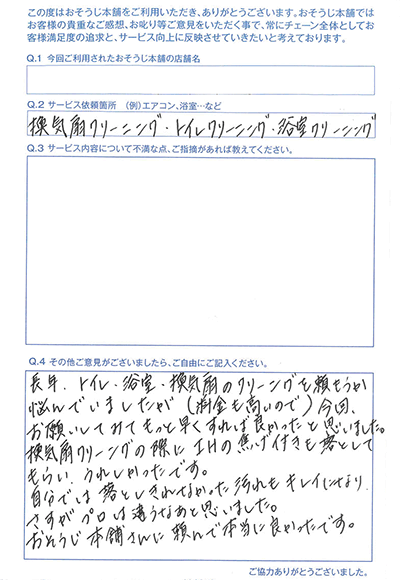 この度はおそうじ本舗をご利用いただき、ありがとうございます。おそうじ本舗では
お客様の貴重なご感想、お叱り等ご意見をいただく事で、常にチェーン全体としてお
客様満足度の追求と、サービス向上に反映させていきたいと考えております。
Q.1 今回ご利用されたおそうじ本舗の店舗名
Q.2 サービス依頼箇所 （例）エアコン、浴室…など
換気扇クリーニング・トイレクリーニング・浴室クリーニング
Q.3 サービス内容について不満な点、ご指摘があれば教えてください。
Q.4 その他ご意見がございましたら、ご自由にご記入ください。
長年、トイレ・浴室・換気扇のクリーニングを頼もうか
悩んでいましたが（料金も高いので）今回、
お願いしてみてもっと早くすれば良かったと思いました。
換気扇クリーニングの際にIHの焦げ付きも落として
もらい、うれしかったです。
自分では落としきれなかった汚れもキレイになり、
さすがプロは違うなあと思いました。
おそうじ本舗さんに頼んで本当に良かったです。
ご協力ありがとうございました。